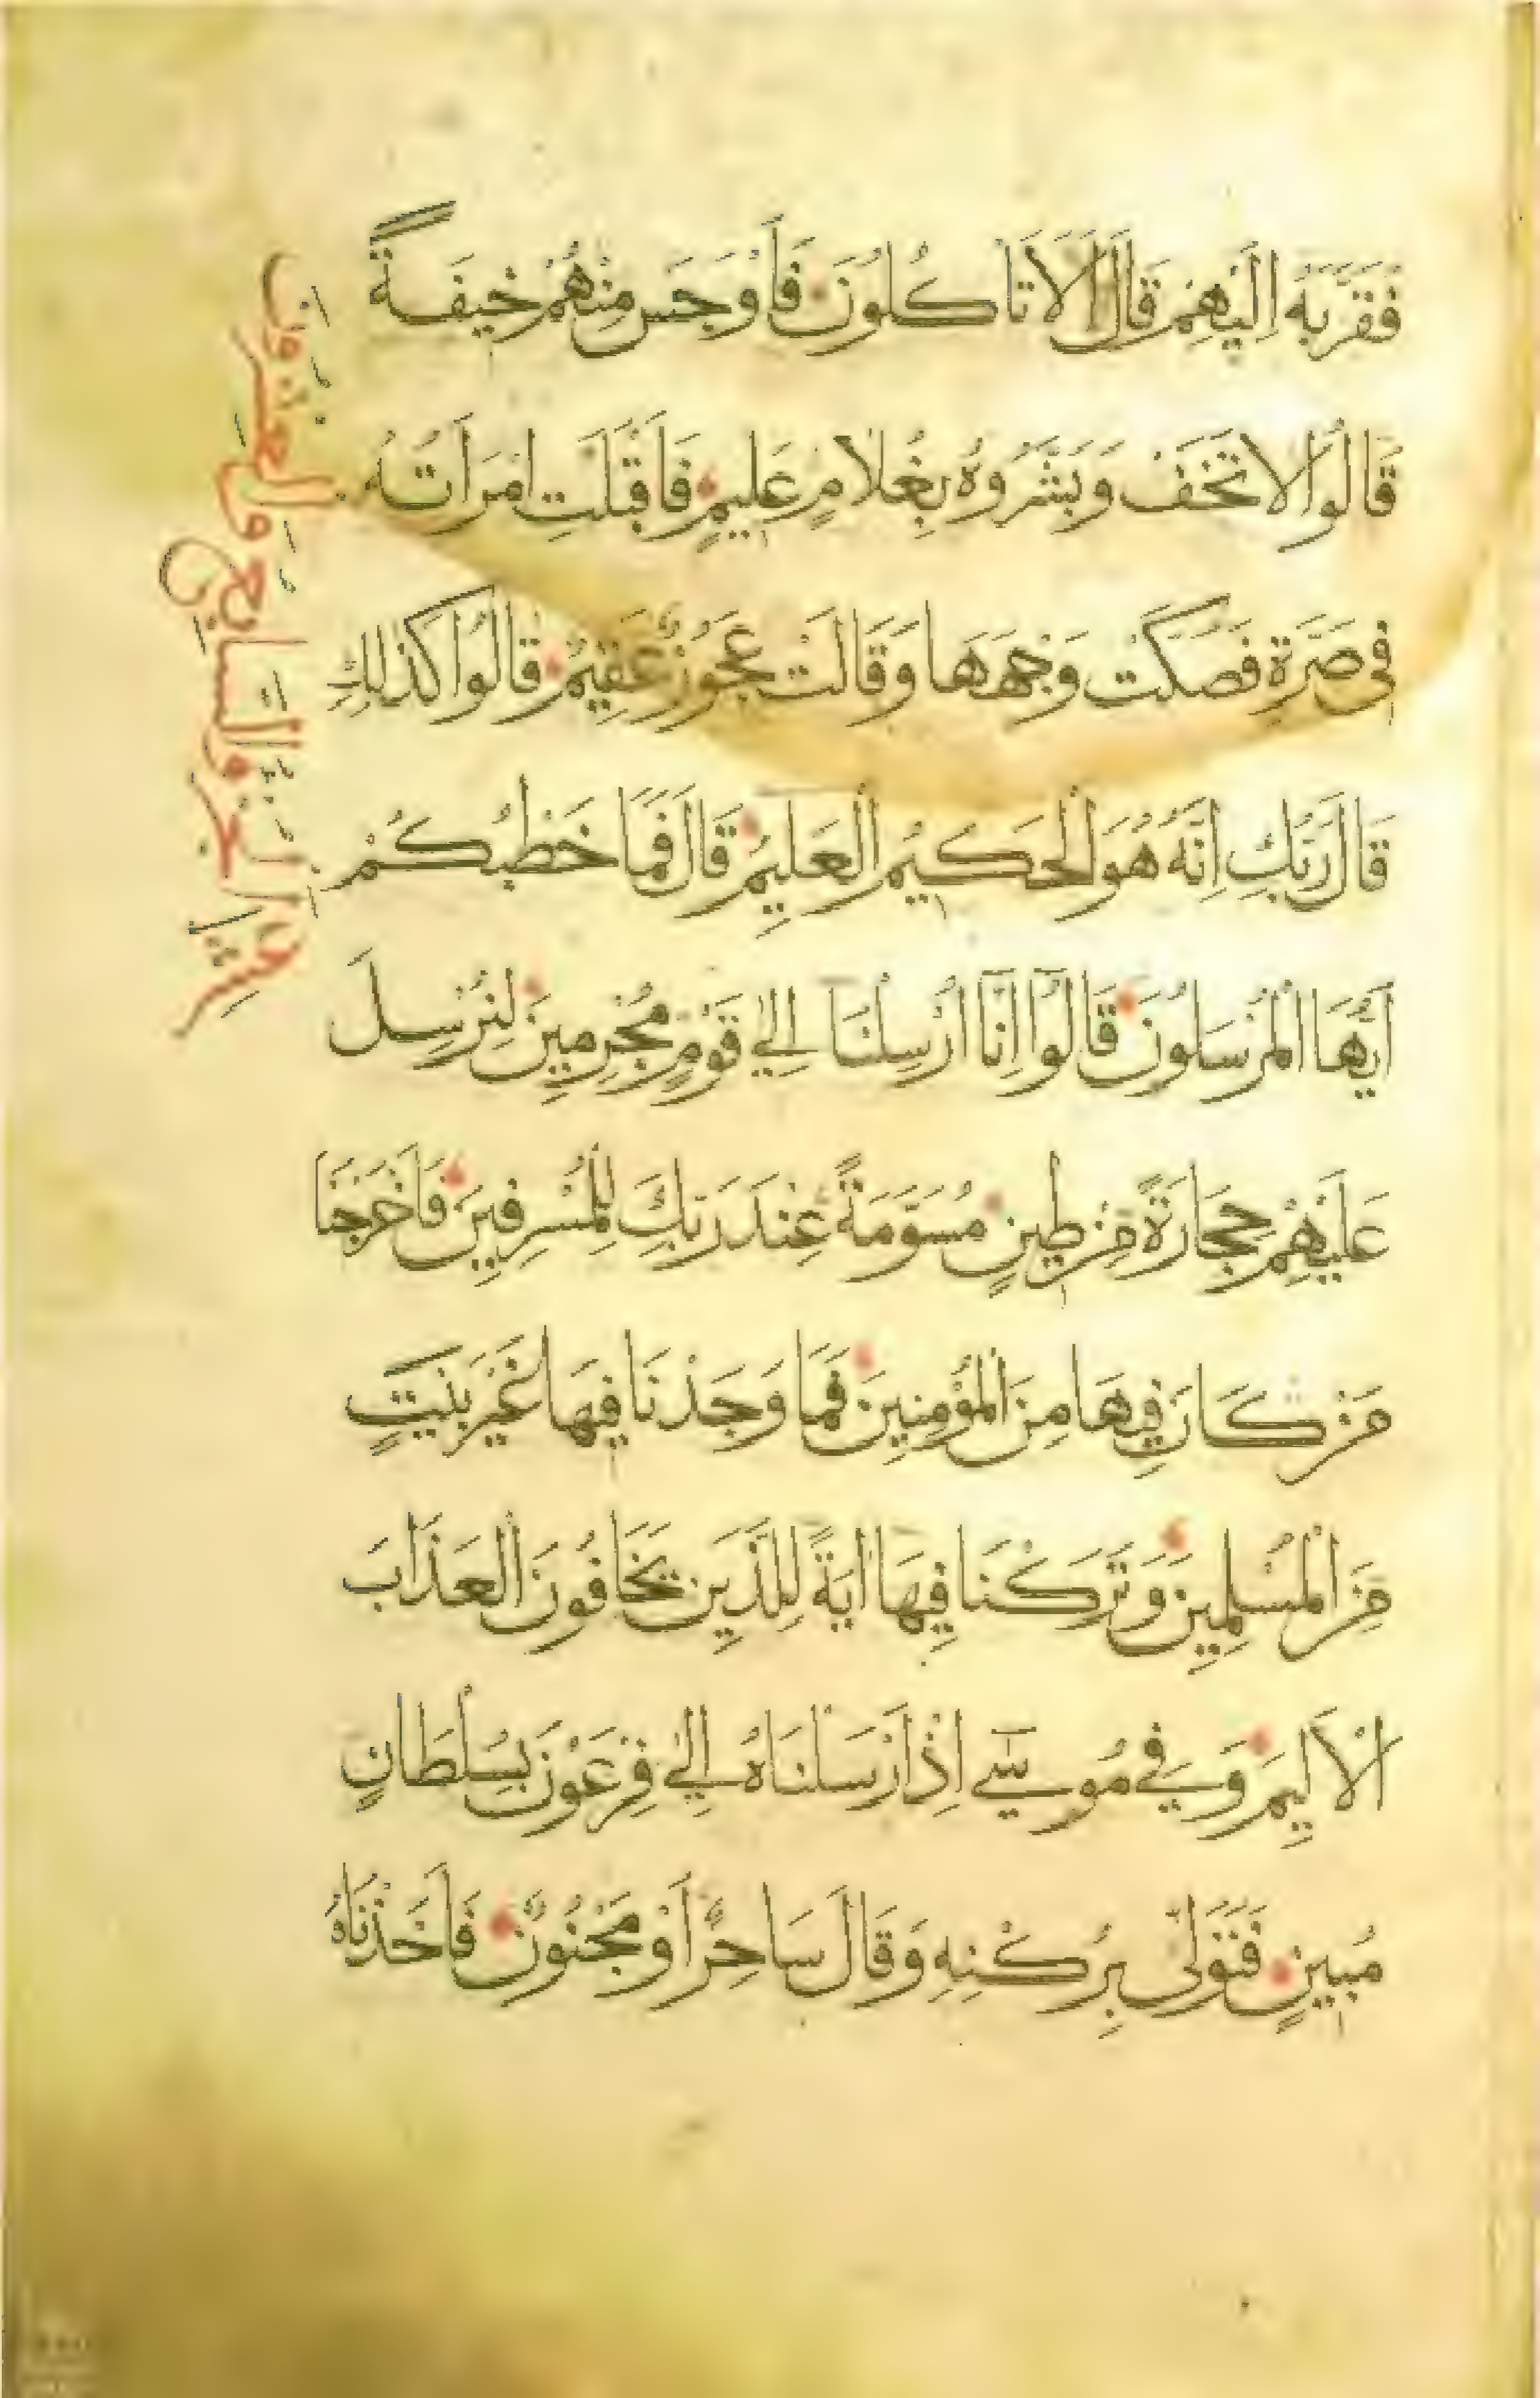 فَقَرَّبَهُ اِلَيْهِمْ قَالَ اَلَا تَاكُلُونَ فَاَوْجَسَ مِنْهُمْ خِيفَةً
قَالُوا لَا تَخَفْ وَبَشَّرُوهُ بِغُلَامٍ عَلِيمٍ فَاَقْبَلَتِ امْرَاَتُهُ
فِي صَرَّةٍ فَصَكَّتْ وَجْهَهَا وَقَالَتْ عَجُوزٌ عَقِيمٌ قَالُوا كَذٰلِكِ
قَالَ رَبُّكِ اِنَّهُ هُوَ الْحَكِيمُ الْعَلِيمُ قَالَ فَمَا خَطْبُكُمْ
اَيُّهَا الْمُرْسَلُونَ قَالُوا اِنَّا اُرْسِلْنَا اِلٰي قَوْمٍ مُجْرِمِينَ لِنُرْسِلَ
عَلَيْهِمْ حِجَارَةً مِنْ طِينٍ مُسَوَّمَةً عِنْدَ رَبِّكَ لِلْمُسْرِفِينَ فَاَخْرَجْنَا
مَنْ كَانَ فِيهَا مِنَ الْمُؤْمِنِينَ فَمَا وَجَدْنَا فِيهَا غَيْرَ بَيْتٍ
مِنَ الْمُسْلِمِينَ وَتَرَكْنَا فِيهَا اٰيَةً لِلَّذِينَ يَخَافُونَ الْعَذَابَ
الْاَلِيمَ وَفِي مُوسٰٓي اِذْ اَرْسَلْنَاهُ اِلٰي فِرْعَوْنَ بِسُلْطَانٍ
مُبِينٍ فَتَوَلّٰي بِرُكْنِهِ وَقَالَ سَاحِرٌ اَوْ مَجْنُونٌ فَاَخَذْنَاهُ
الجزو السابع والعشرون
عشر